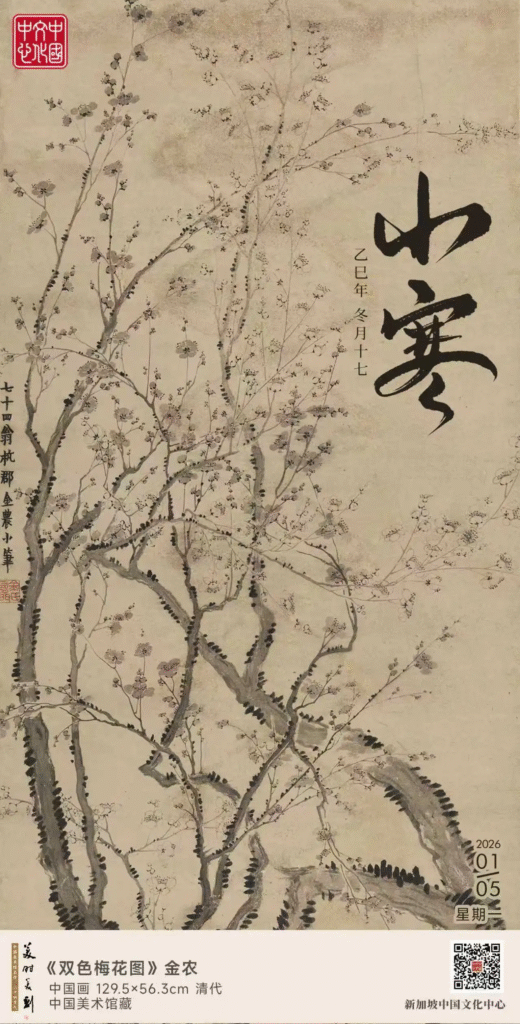 中國
文化
中心
小寒
乙巳年 冬月十七
七十四翁杭郡金農小筆
2026
01
05
星期一
美时美刻
《双色梅花图》金农
中国画 129.5×56.3cm 清代
中国美术馆藏
新加坡中国文化中心